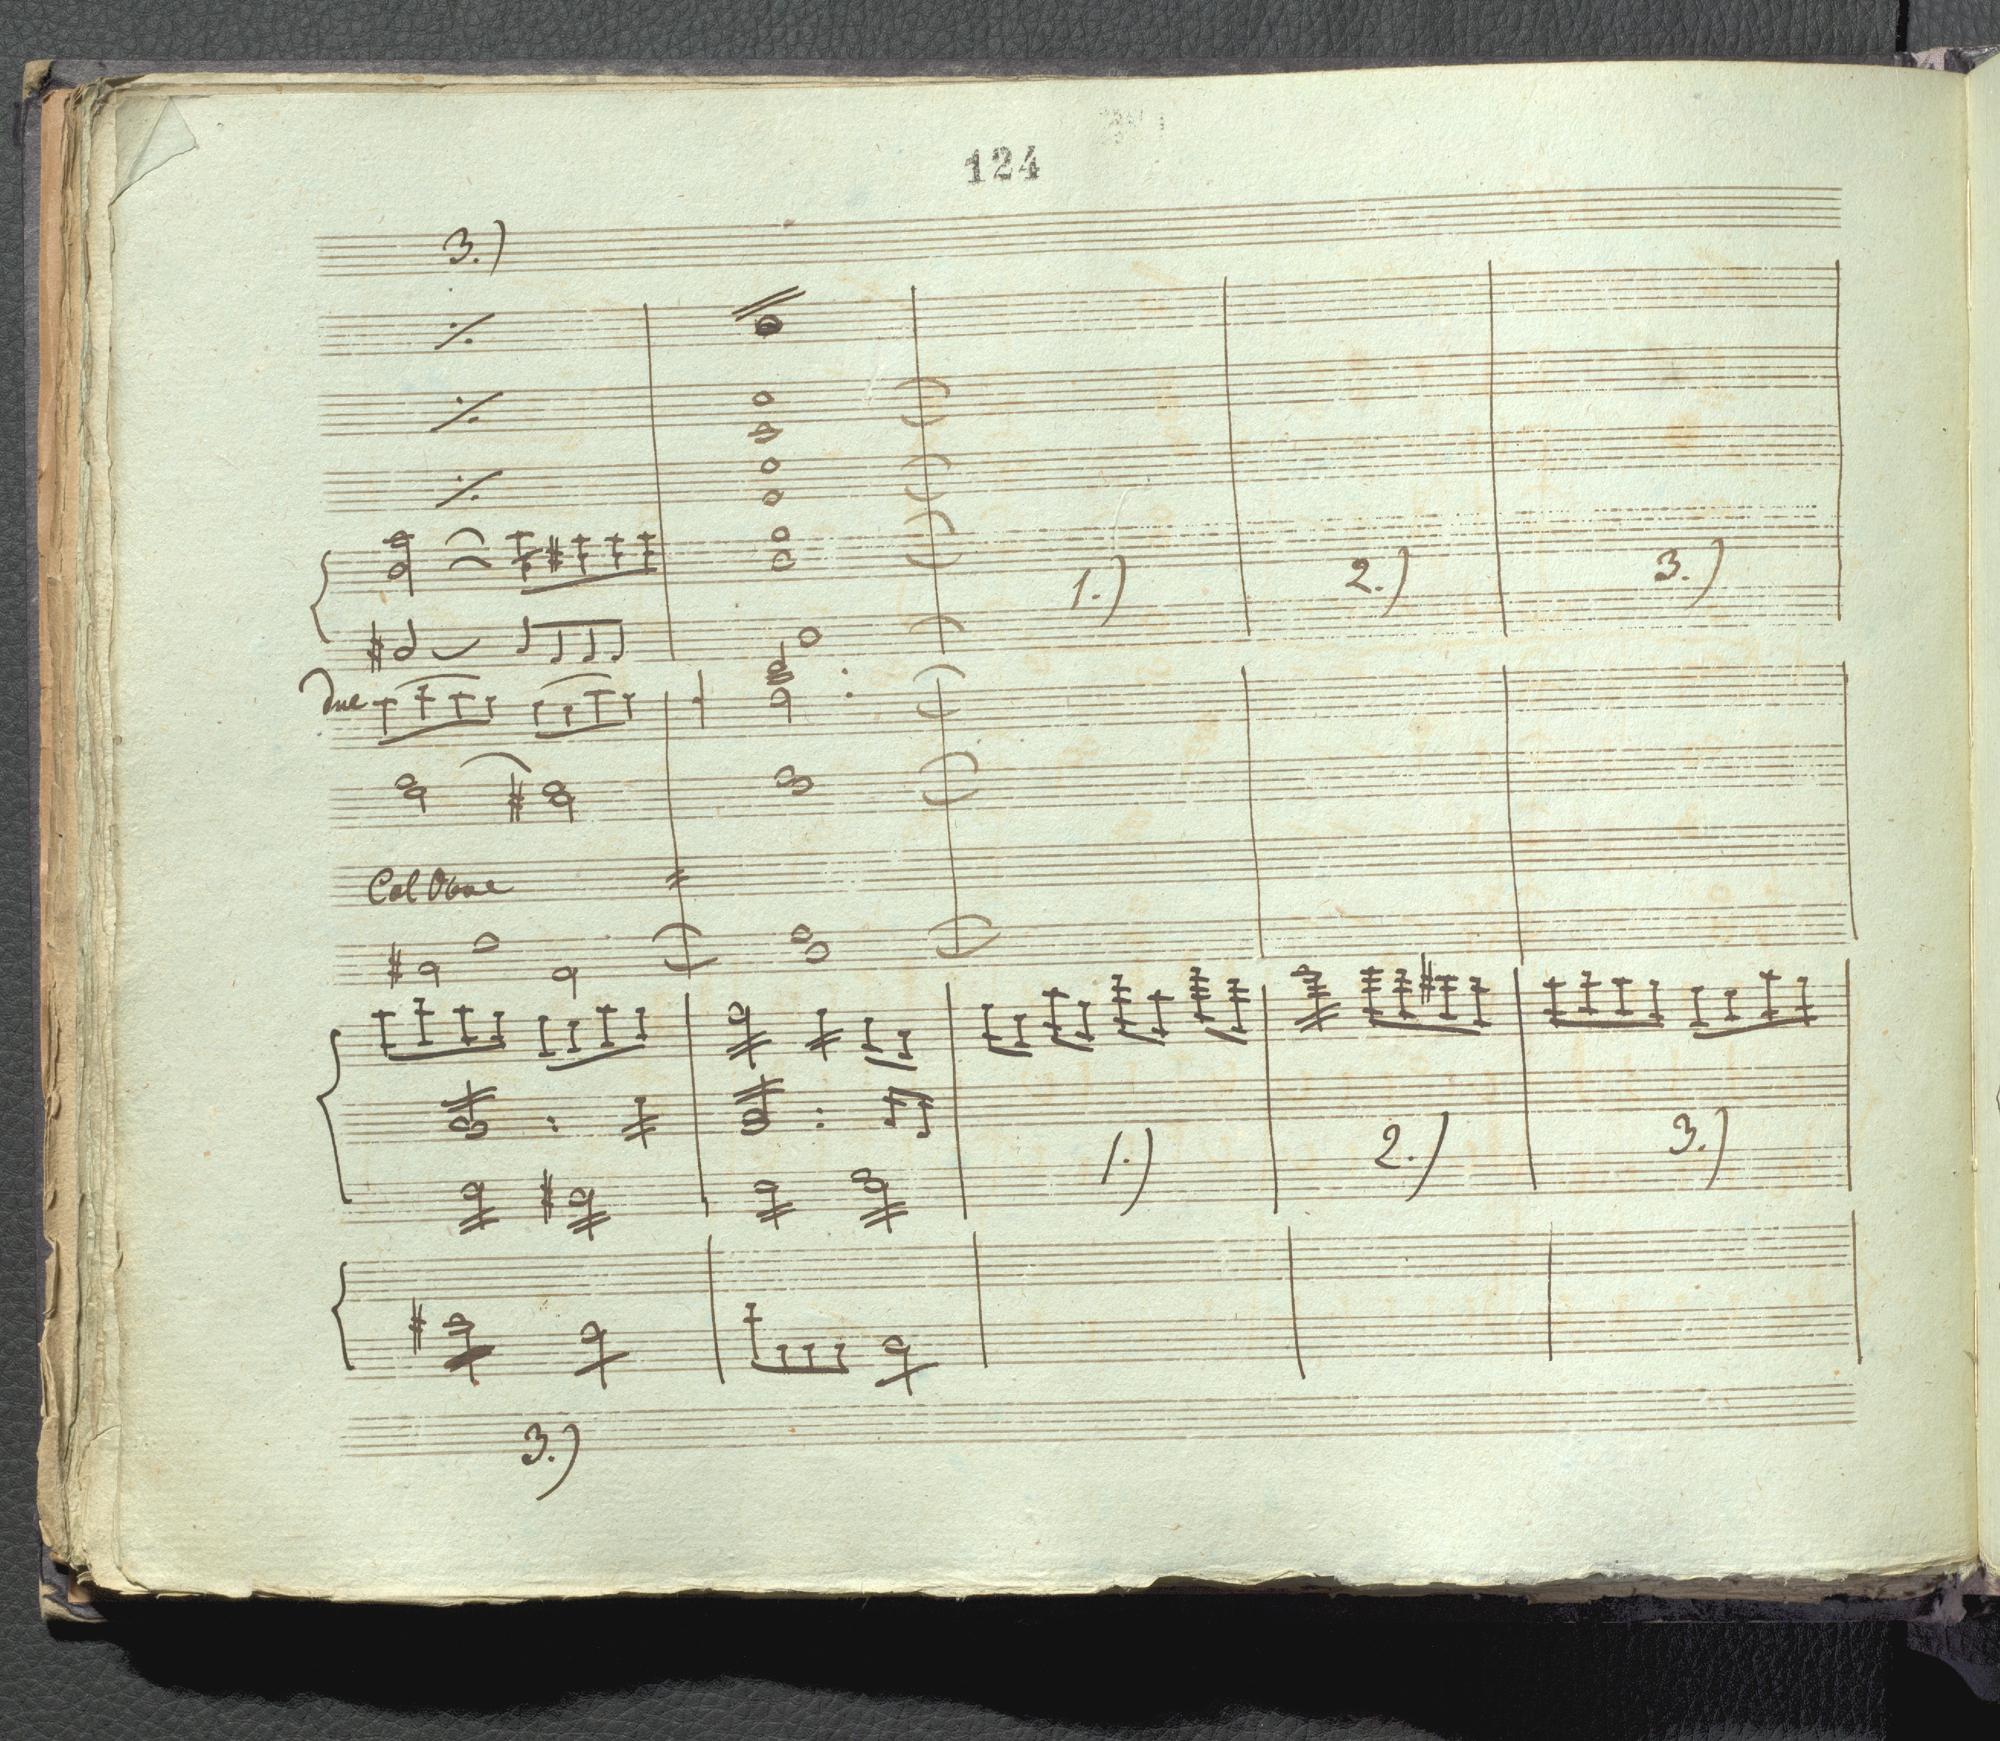 124
3.)
1.) 2.) 3.)
due
Col Oboe
1.) 2.) 3.)
3.)